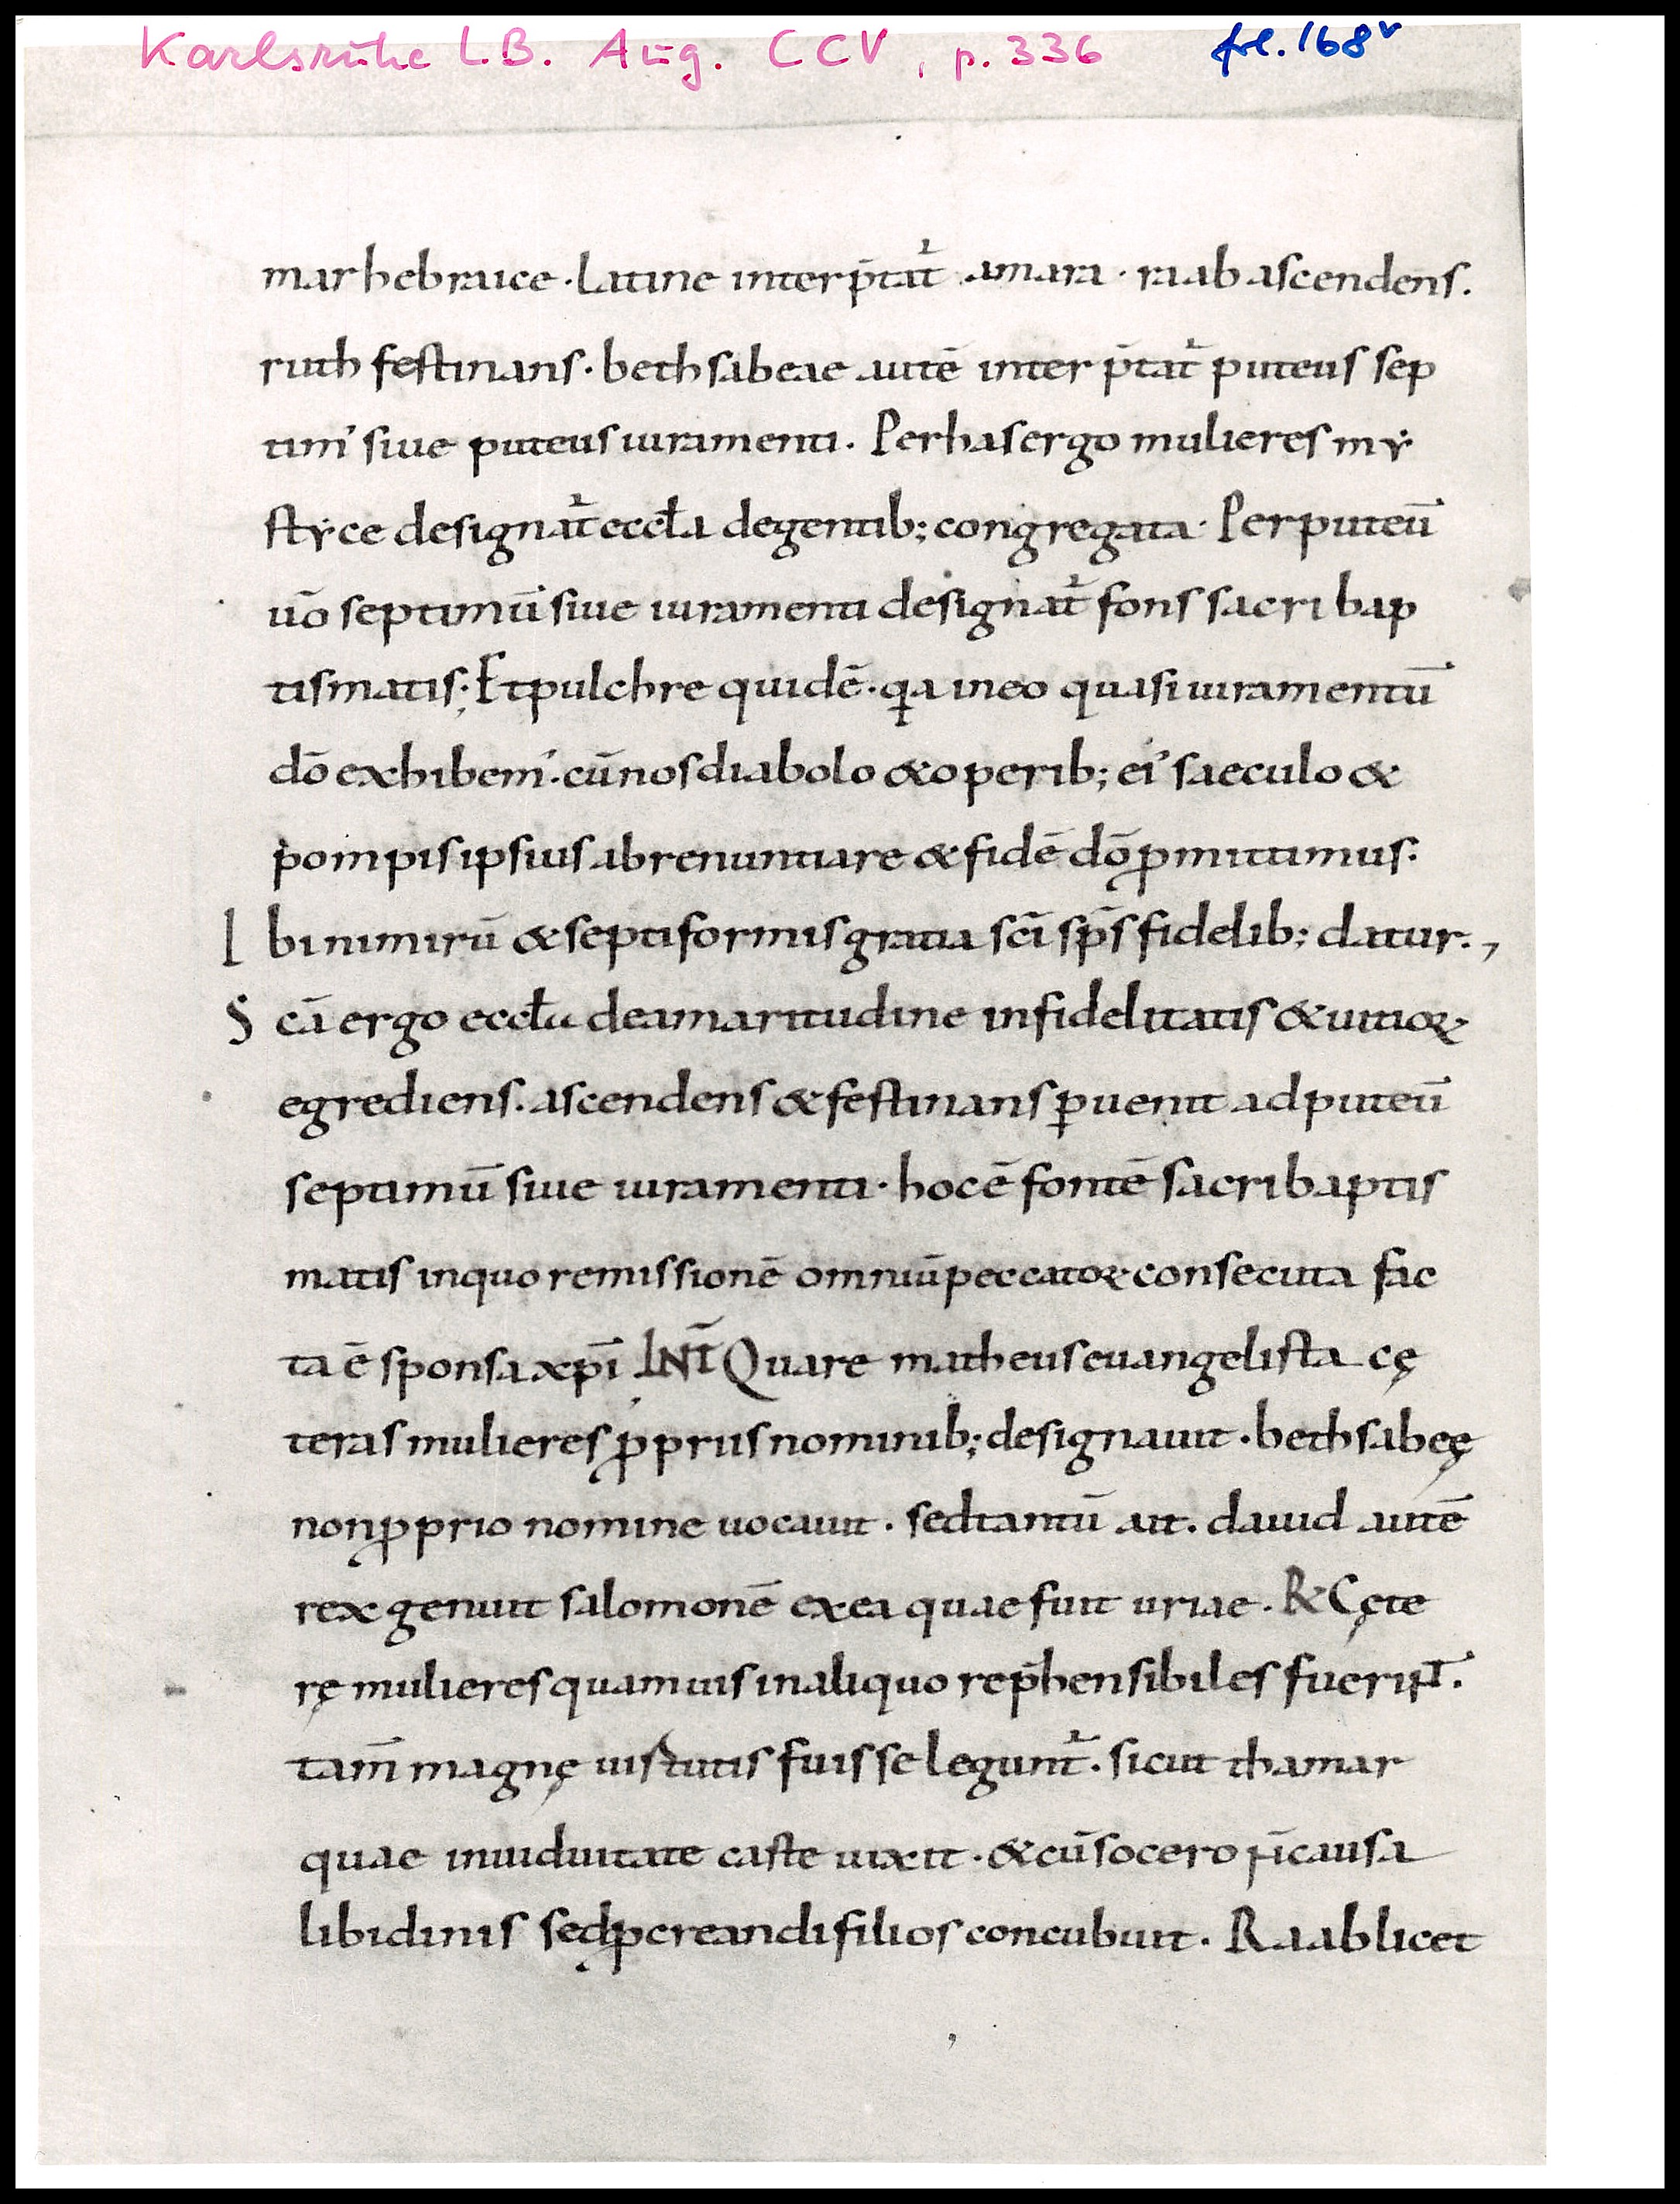 Karlsruhe L.B. Aug. CCV, p. 336 fol. 168v
mar hebraice · Latine interp̄tat᷑ amara · raab ascendens.
ruth festinans · bethsabeae autē interp̄tat᷑ puteus sep
timꝰ siue puteus iuramenti. Per has ergo mulieres mẏ
stẏce designat᷑ eccła de gentib; congregata · Per puteū
uō septimū siue iuramenti designat᷑ fons sacri bap
tismatis; Et pulchre quidē · qꝛa in eo quasi iuramentū
dō exhibemꝰ. cū nos diabolo & operib; eiꝰ saeculo &
pompis ipsius abrenuntiare & fidē dō ꝓmittimus.
I bi nimirū & septiformis gratia sc̄i sp̄s fidelib; datur.,
S cā ergo eccła de amaritudine infidelitatis & uitioꝝ
egrediens. ascendens & festinans ꝑuenit ad puteū
septimū siue iuramenti · hoc ē fontē sacri baptis
matis in quo remissionē omniū peccatoꝝ consecuta fac
ta ē sponsa xp̄i INT̄ Quare matheus euangelista cę
teras mulieres ꝓpriis nominib; designauit · bethsabeę
non ꝓprio nomine uocauit · sed tantū ait. dauid autē
rex genuit salomonē ex ea quae fuit uriae. R& Cęte
rę mulieres quamuis in aliquo rep̄hensibiles fuerint.
tam̄ magnę uirtutis fuisse legunt᷑. sicut thamar
quae in uiduitate caste uixit · & cū socero n̄ causa
libidinis sed ꝓcreandi filios concubuit. Raab licet